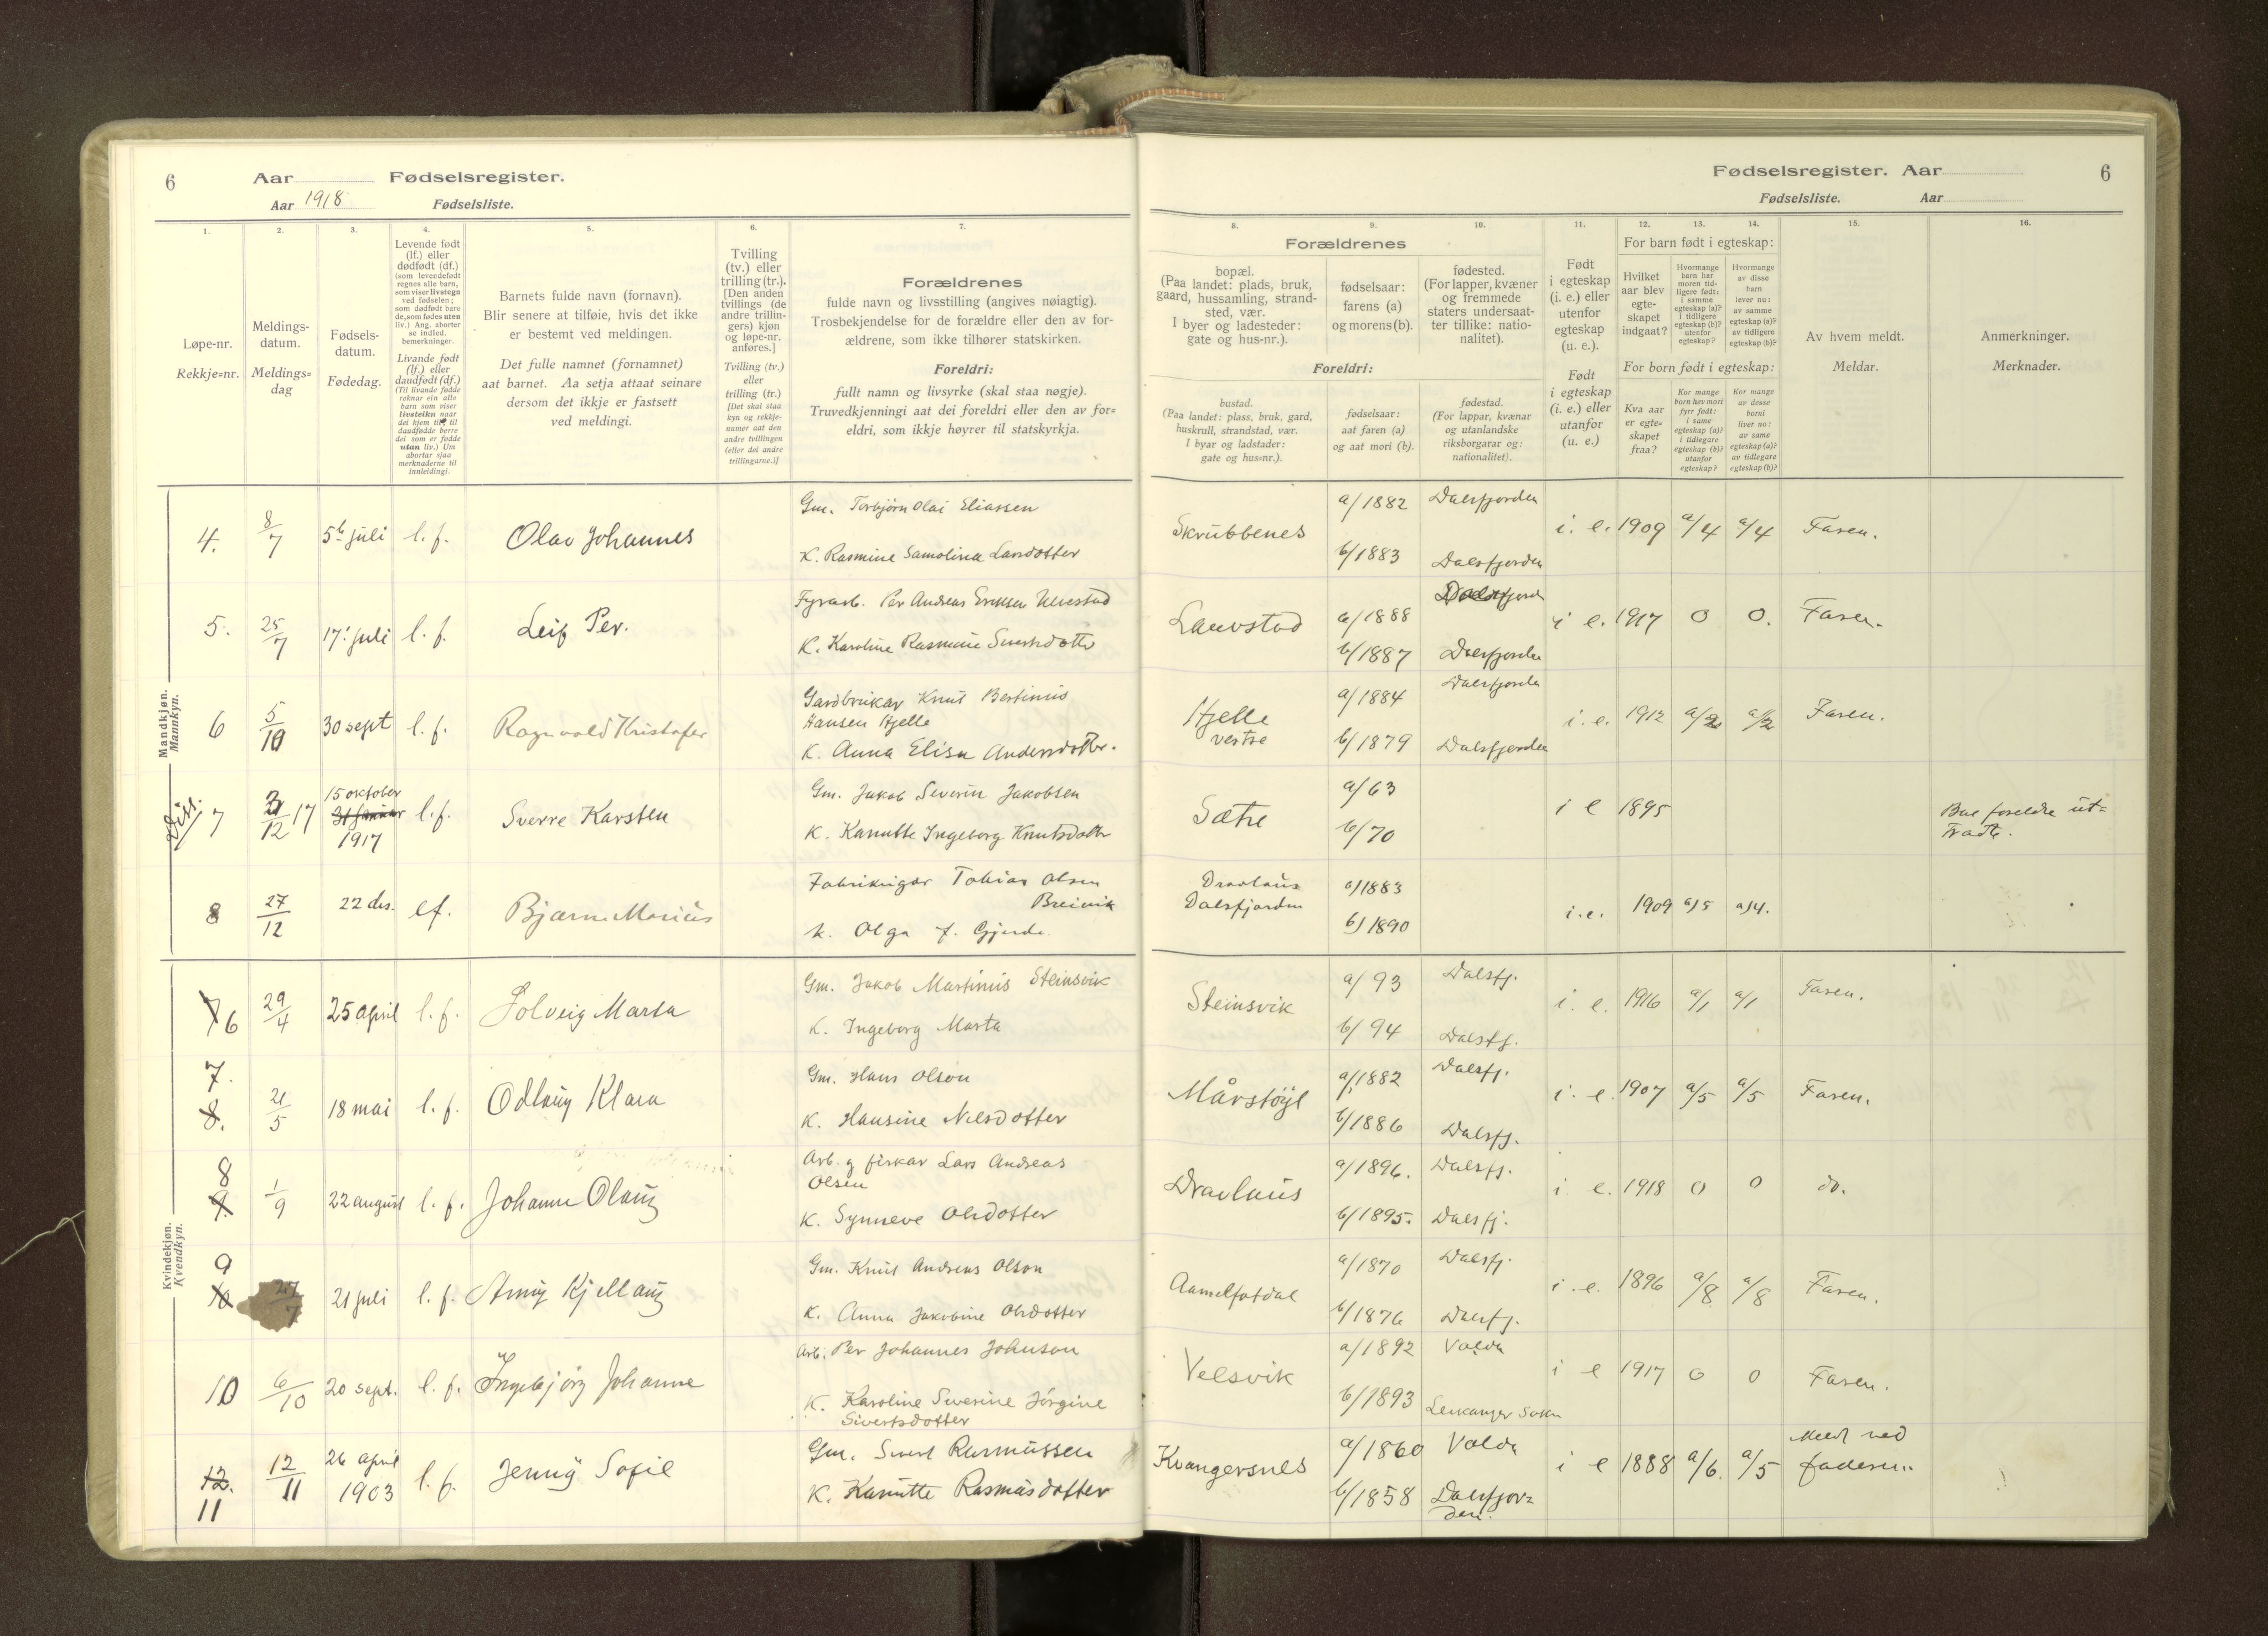 6 Aar Fødselsregister.
Aar 1918 Fødselsliste.
Fødselsregister. Aar 6
Fødselsliste. Aar
1. 2. 3. 4. 5. 6. 7.
Løpe-nr.
Rekkje=nr.
Meldings-
datum.
Meldings=
dag
Fødsels-
datum.
Fødedag.
Levende født
(lf.) eller
dødfødt (df.)
(som levendefødt
regnes alle barn,
som viser livstegn
ved fødselen;
som dødfødt bare
de, som fødes uten
liv.) Ang. aborter
se indled.
bemerkninger.
Livande født
(lf.) eller
daudfødt (df.)
(Til livande fødde
reknar ein alle
barn som viser
livsteikn naar
dei kjem til, til
daudfødde berre
dei som er fødde
utan liv.) Um
abortar sjaa
merknaderne til
innleidingi.
Barnets fulde navn (fornavn).
Blir senere at tilføie, hvis det ikke
er bestemt ved meldingen.
Det fulle namnet (fornamnet)
aat barnet. Aa setja attaat seinare
dersom det ikkje er fastsett
ved meldingi.
Tvilling
(tv.) eller
trilling (tr.).
[Den anden
tvillings (de
andre trillin-
gers) kjøn
og løpe-nr.
anføres.]
Tvilling (tv.)
eller
trilling (tr.)
[Det skal staa
kyn og rekkje-
numer aat den
andre tvillingen
(eller dei andre
trillingarne.)]
Forældrenes
fulde navn og livsstilling (angives nøiagtig).
Trosbekjendelse for de forældre eller den av for-
ældrene, som ikke tilhører statskirken.
Foreldri:
fullt namn og livsyrke (skal staa nøgje).
Truvedkjenningi aat dei foreldri eller den av for=
eldri, som ikkje høyrer til statskyrkja.
8. 9. 10. 11. 12. 13. 14. 15. 16.
Forældrenes
bopæl.
(Paa landet: plads, bruk,
gaard, hussamling, strand-
sted, vær.
I byer og ladesteder:
gate og hus-nr.).
fødselsaar:
farens (a)
og morens (b).
fødested.
(For lapper, kvæner
og fremmede
staters undersaat-
ter tillike: natio-
nalitet).
Foreldri:
bustad.
(Paa landet: plass, bruk, gard,
huskrull, strandstad, vær.
I byar og ladstader:
gate og hus=nr.).
fødselsaar:
aat faren (a)
og aat mori (b).
fødestad.
(For lappar, kvænar
og utanlandske
riksborgarar og:
nationalitet).
Født
i egteskap
(i. e.) eller
utenfor
egteskap
(u. e.).
Født
i egteskap
(i. e.) eller
utanfor
(u. e.)
For barn født i egteskap:
Hvilket
aar blev
egte-
skapet
indgaat?
Hvormange
barn har
moren tid-
ligere født:
i samme
egteskap (a)?
i tidligere
egteskap (b)?
utenfor
egteskap?
Hvormange
av disse
barn
lever nu:
av samme
egteskap (a)?
av tidligere
egteskap (b)?
For born født i egteskap:
Kva aar
er egte=
skapet
fraa?
Kor mange
born hev mori
fyrr født:
i same
egteskap (a)?
i tidlegare
egteskap (b)?
utanfor
egteskap?
Kor mange
av desse
borni
liver no:
av same
egteskap (a)?
av tidlegare
egteskap (b)?
Av hvem meldt.
Meldar.
Anmerkninger.
Merknader.
Mandkjøn.
Mannkyn.
4. 8/7 5t juli l. f. Olav Johannes
Gm. Torbjørn Olai Eliassen
K. Rasmine Samolina Larsdotter
Skrubbenes a/1882 Dalsfjorden
b/1883 Dalsfjorden
i. e. 1909 a/4 a/4 Faren.
5. 25/7 17' juli l. f. Leif Per.
Fyrarb. Per Andreas Eriksen Ulvestad
K. Karoline Rasmine Sivertsdotter
Lauvstad a/1888 Dalsfjord
b/1887 Dalsfjorden
i e. 1917 0 0. Faren.
6 5/10 30 sept l. f. Ragnvald Kristofer
Gardbrukar Knut Bertinus
Hansen Hjelle
K. Anna Elisa Andersdotter.
Hjelle
vestre
a/1884 Dalsfjorden
b/1879 Dalsfjorden
i. e. 1912 a/2 a/2 Faren.
7 3/12 17 15 oktober
31 januar
1917
l. f. Sverre Karsten
Gm. Jakob Severin Jakobsen
K. Kanutte Ingeborg Knutsdotter
Sætre a/63
b/70
i e 1895
Bae foreldre ut=
tradte.
8 27/12 22 des. lf. Bjarne Marius
Fabrikeigar Tobias Olsen
Breivik
k. Olga f. Gjerde.
Dravlaus
Dalsfjorden
a)1883
b)1890
i.e. 1909 a)5 a)4.
Kvindekjøn.
Kvendkyn.
7 6 29/4 25 april l. f. Solveig Marta
Gm. Jakob Martinus Steinsvik
K. Ingeborg Marta
Steinsvik a/93 Dalsfj.
b/94 Dalsfj.
i. e. 1916 a/1 a/1 Faren.
7.
8. 21/5 18 mai l. f. Odlaug Klara
Gm. Hans Olson
K. Hansine Nilsdotter
Mårstøyl a/1882 Dalsfj.
b/1886 Dalsfj.
i. e. 1907 a/5 a/5 Faren.
8
9. 1/9 22 august l. f. Johanne Olaug
Arb. g fiskar Lars Andreas
Olsen
K. Synneve Olsdotter
Dravlaus a/1896. Dalsfj.
b/1895. Dalsfj.
i e. 1918 0 0 do.
9
10 27/7 21 juli l. f. Anny Kjellaug
Gm. Knut Andreas Olson
K. Anna Jakobine Olsdotter
Aamelfotdal a/1870 Dalsfj.
b/1876 Dalsfj.
i. e. 1896 a/8 a/8 Faren.
10 6/10 20 sept. l. f. Ingebjørg Johanne
Arb. Per Johannes Johnson
K. Karoline Severine Jørgine
Sivertsdotter
Velsvik a/1892 Volda
b/1893 Leikanger Sokn
i e 1917 0 0 Faren.
12.
11
12/11 26 april
1903
l. f. Jenny Sofie
Gm. Sivert Rasmussen
K. Kanutte Rasmusdotter
Kvangersnes a/1860 Volda
b/1858 Dalsfjor=
den.
i e 1888 a/6. a/5 Meldt ved
faderen.